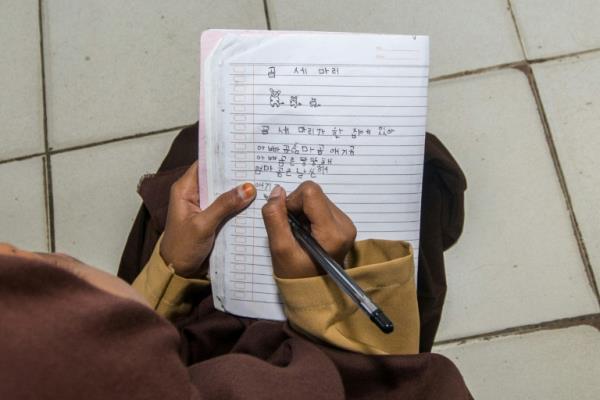 곰 세 마리
곰 세 마리가 한 집에 있어
아빠곰 엄마곰 애기곰
아빠 곰은 뚱뚱해
엄마 곰은 날씬해
애기